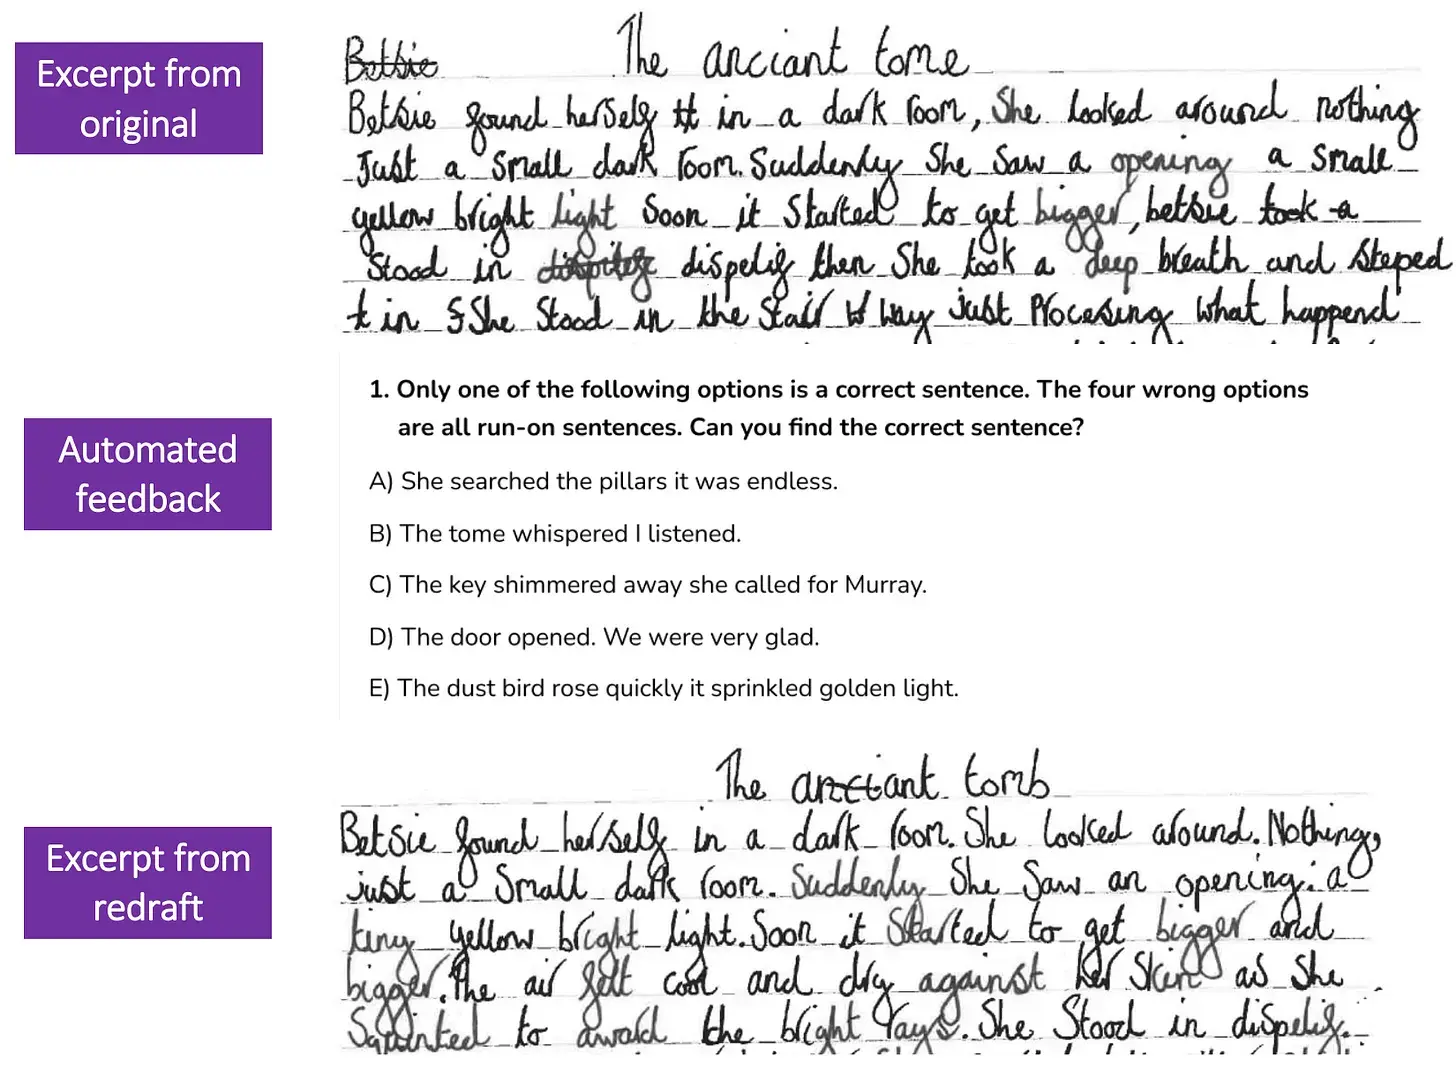 Excerpt from
original
Betsie The anciant tome
Betsie found herself tt in a dark room, She looked around nothing
Just a small dark room. Suddenly She Saw a opening a small
yellow bright light Soon it Started to get bigger, betsie took a
Stood in dispelif then She took a deep breath and Steped
t in She Stood in the Stair way just Procesing what happend
Automated
feedback
1. Only one of the following options is a correct sentence. The four wrong options
are all run-on sentences. Can you find the correct sentence?
A) She searched the pillars it was endless.
B) The tome whispered I listened.
C) The key shimmered away she called for Murray.
D) The door opened. We were very glad.
E) The dust bird rose quickly it sprinkled golden light.
Excerpt from
redraft
The anciant tomb
Betsie found herself in a dark room. She looked around. Nothing,
just a Small dark room. Suddenly She Saw an opening: a
tiny yellow bright light. Soon it Started to get bigger and
bigger. The air felt cool and dry against her Skin as She
Squinted to avoid the bright rays. She Stood in dispelif.